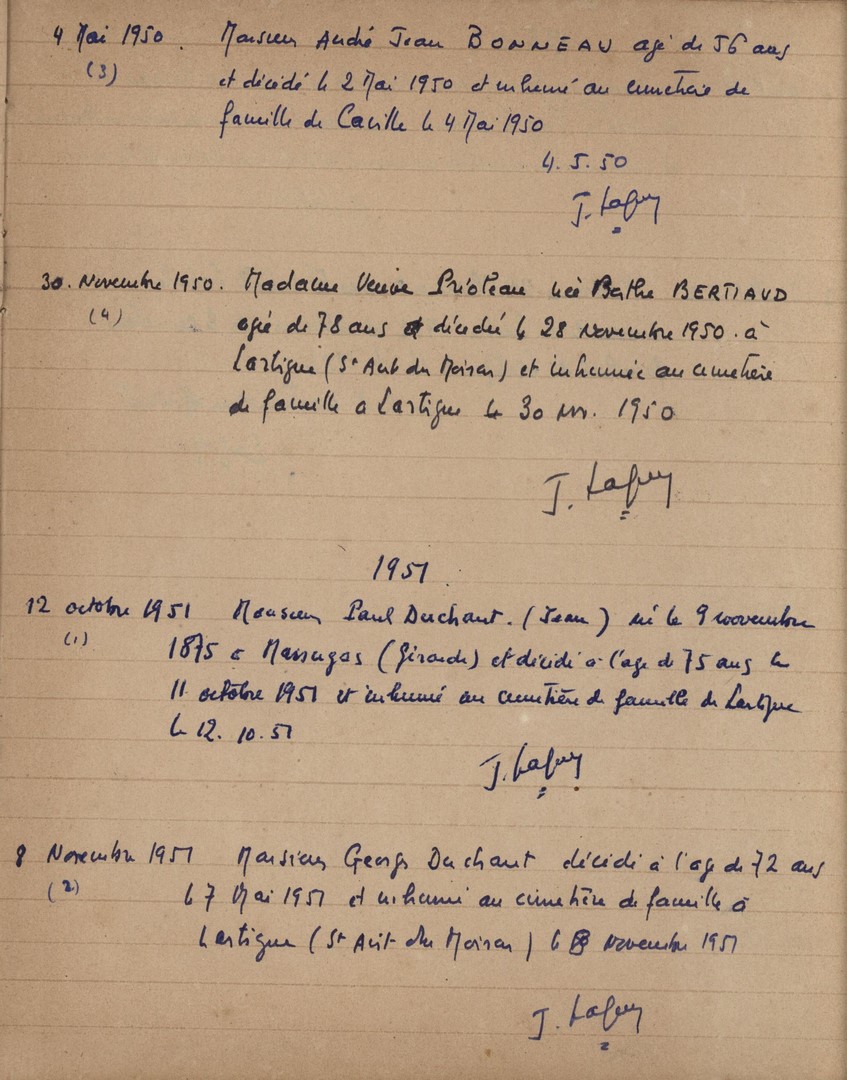 4 Mai 1950. Monsieur André Jean BONNEAU agé de 56 ans
(3) et décédé le 2 Mai 1950 et inhumé au cimetière de
famille de Caville le 4 Mai 1950
4. 5. 50
30. Novembre 1950. Madame Veuve Prioteau née Berthe BERTIAUD
(4) agée de 78 ans décédée le 28 Novembre 1950. à
Lartigue (St Avit du Moiron) et inhumée au cimetière
de famille a Lartigue le 30 nov. 1950
1951
12 octobre 1951 Monsieur Paul Duchant. (Jean) né le 9 novembre
(1) 1875 a Massugas (Gironde) et décidé a l'age de 75 ans le
11 octobre 1951 et inhumé au cimetière de famille de Lartigue
le 12. 10. 51
8 Novembre 1951 Monsieur Georges Duchant décidé à l'age de 72 ans
(2) le 7 Mai 1951 et inhumé au cimetière de famille a
Lartigue (St Avit du Moiron) le 8 Novembre 1951